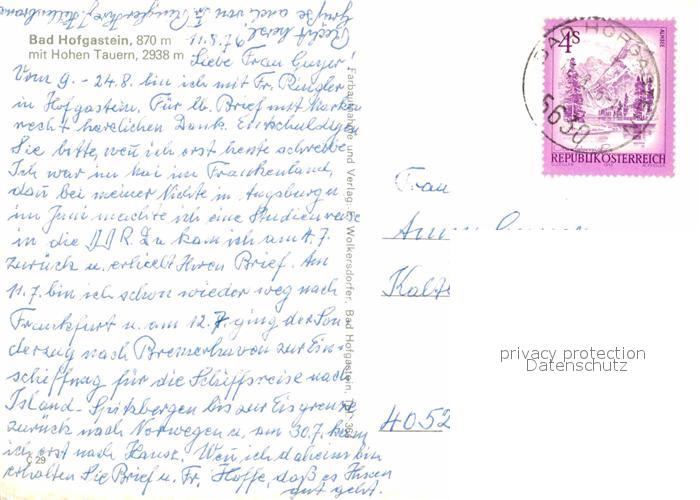 Grüße auch von Fr. Ringler
Recht herzl.
Bad Hofgastein, 870 m
mit Hohen Tauern, 2938 m
11.8.76
Liebe Frau Guyer!
Vom 9. - 24.8. bin ich mit Fr. Ringler
in Hofgastein. Für lb. Brief mit Marken
recht herzlichen Dank. Entschuldigen
Sie bitte, weñ ich erst heute schreibe.
Ich war im Mai im Frankenland,
dañ bei meiner Nichte in Augsburg u.
im Juni machte ich eine Studienreise
in die DDR. Da kam ich am 4.7.
zurück u. erhielt Ihren Brief. Am
11.7. bin ich schon wieder weg nach
Frankfurt u. am 12.7. ging der Son
derzug nach Bremerhaven zur Ein
schiffung für die Schiffsreise nach
Island - Spitzbergen bis zur Eisgrenze
zurück nach Norwegen u. am 30.7. kam
ich erst nach Hause. Weñ ich daheim bin
erhalten Sie Brief u. Fr. Hoffe daß es Ihnen
gut geht.
C 29
Farbaufnahme und Verlag: Wolkersdorfer, Bad Hofgastein, Tel.
4S
ALMSEE
REPUBLIK ÖSTERREICH
BAD HOFGASTEIN
5630
Frau
4052
privacy protection
Datenschutz